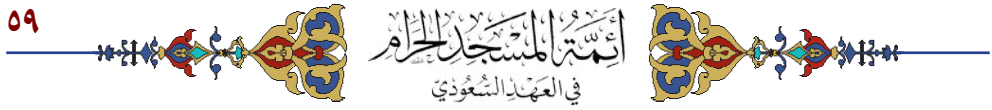 ٥٩
أَئِمَّةُ المَسْجِدِ الحَرَامِ
في العَهْدِ السُّعُوْدِيّ